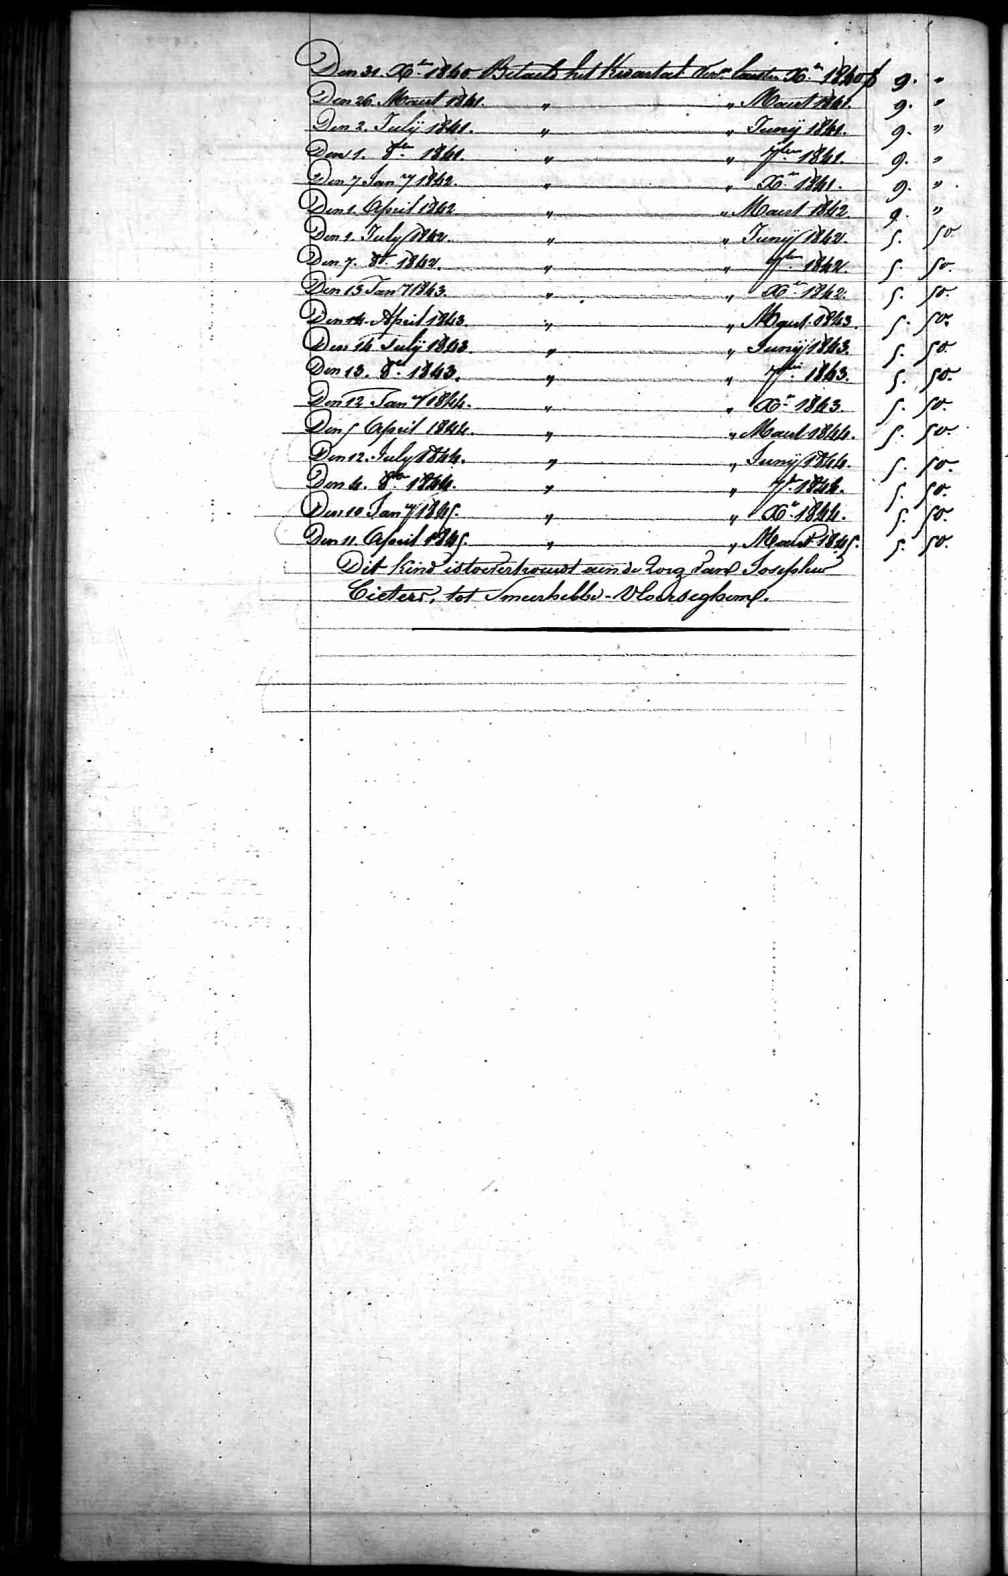 Den 31. Xr 1840 Betaelt het Kwartael verv. laesten Xr 1840 f 9. "
Den 26. Maert 1841. " " Maert 1841. 9. "
Den 2. July 1841. " " Juny 1841. 9. "
Den 1. 8ber 1841. " " 7ber 1841. 9. "
Den 7 Jany 1842. " " Xr 1841. 9. "
Den 1. April 1842 " " Maert 1842 9. "
Den 1. July 1842. " " Juny 1842. 5. 50.
Den 7. 8r 1842. " " 7ber 1842 5. 50.
Den 13 Jany 1843. " " Xr 1842. 5. 50.
Den 14. April 1843. " " Maert 1843. 5. 50.
Den 14 July 1843. " " Juny 1843. 5. 50.
Den 13. 8r 1843. " " 7ber 1843. 5. 50.
Den 12 Jany 1844. " " Xr 1843. 5. 50.
Den 5 April 1844. " " Maert 1844. 5. 50.
Den 12. July 1844. " " Juny 1844. 5. 50.
Den 4. 8ber 1844. " " 7r 1844. 5. 50.
Den 10 Jany 1845. " " Xr 1844. 5. 50.
Den 11. April 1845. " " Maert 1845. 5. 50.
Dit kind is toevertrouwt aen de zorg van Josephus
Cieters, tot Smeerhebbe-Vloerseghem.